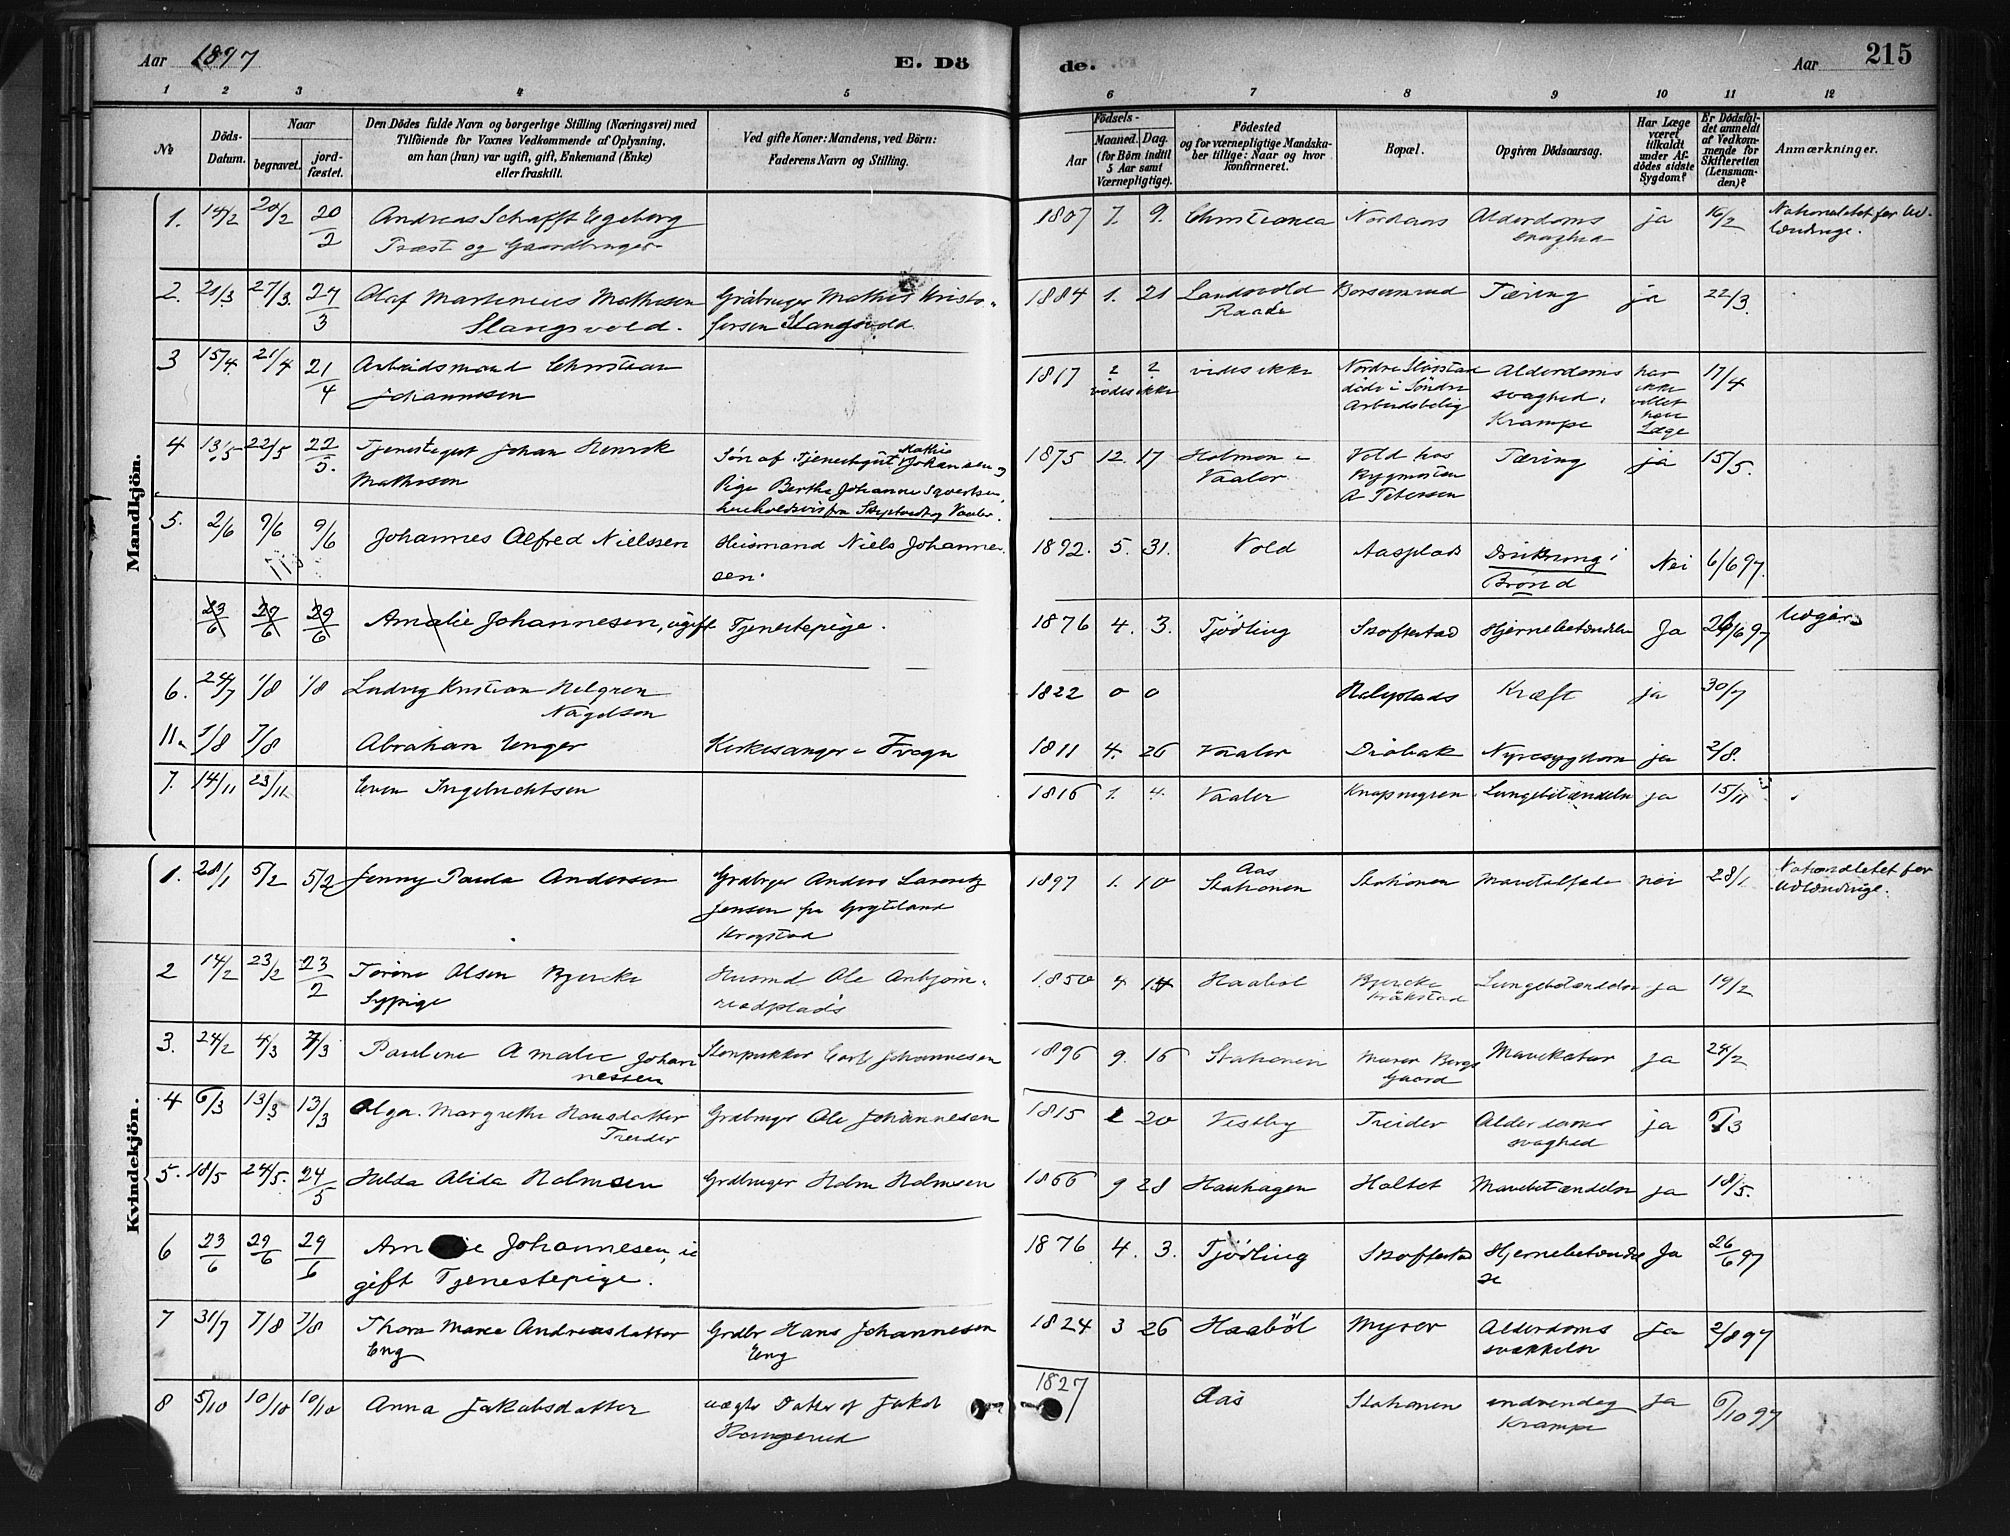 Aar 1897
E. Dö
de.
Aar
215
1 2 3 4 5 6 7 8 9 10 11 12
No
Döds-Datum.
Naar
begravet.
jord-fæstet.
Den Dödes fulde Navn og borgerlige Stilling (Næringsvei) med
Tilföiende for Voxnes Vedkommende af Oplysning,
om han (hun) var ugift, gift, Enkemand (Enke)
eller fraskilt.
Ved gifte Koner: Mandens, ved Börn:
Faderens Navn og Stilling.
Födsels-
Aar
Maaned. Dag.
(for Börn indtil
5 Aar samt
Værnepligtige).
Födested
og for værnepligtige Mandska-
ber tillige: Naar og hvor
konfirmeret.
Bopæl.
Opgiven Dödsaarsag.
Har Læge
været
tilkaldt
under Af-
dödes sidste
Sygdom?
Er Dödsfal-
det anmeldt
af Vedkom-
mende for
Skifteretten
(Lensman-
den)?
Anmærkninger.
Mandkjön.
1. 14/2 20/2 20/2 Andreas Schafft Egeberg 1807 7. 9. Christiania Nordaas Alderdoms ja 16/2 Nationalitet for Ud-
Præst og Gaardbruger svaghed lændinge.
2. 21/3 27/3. 27/3 Olaf Martinius Mathisen Gråbruger Mathis Kristo- 1884 1. 21 Landsvold Tæring ja 22/3.
Slangsvold. fersen Slangsvold. Raade
3 15/4. 21/4 21/4 Arbeidsmand Christian 1817 2 2 vides ikke Nordre Alderdoms har 17/4
Johannesen vides ikke döde i Söndre svaghed. ikke
Arbeidsbolig Krampe villet
have
Læge
4 13/5 22/5 22/5. Tjenestegut Johan Henrik Sön af Tjenestegut Mathis Johansen 1875 12. 17 Holmen i Vold hos Tæring ja 15/5.
Mathisen Pige Berthe Johanne Vaaler Bygmester
henholdsvis fra Skiptvedt og Vaaler. A Petersen
5. 2/6 9/6 9/6 Johannes Alfred Nielssen Husmand Niels Johanne- 1892. 5. 31. Vold Aasplads Drukning i Nei 6/6 97.
sen. Brönd
23/6 29/6 29/6 Amalie Johannesen, ugift Tjenestepige. 1876 4. 3. Tjödling Skoftestad Hjernebetændelse Ja 26/6 97 Udgår
6. 24/7 1/8 1/8 Ludvig Kristian Helgren 1822 0 0 Kræft ja 30/7
Nagelsen
11. 1/8 7/8 Abraham Unger Kirkesanger i Frogn 1811 4. 26 Vaaler Dröbak Nyresygdom ja 2/8.
7. 14/11 23/11 Even Ingebrichtsen 1816 1. 4. Vaaler Knapnegren Lungebetændelse ja 15/11
Kvindekjön.
1. 28/1 5/2 5/2 Jenny Paula Andersen Grdbrger Anders Laurentz 1897 1. 10 Aas Stationen Mavetilfælde nei 28/1 Nationalitet for
Jensen fra Stationen Udlændinge.
Krogstad
2 14/2 23/2 23/2 Torine Olsen Bjercke Husmd Ole 1850 4 14 Haaböl Bjercke Lungebetændelse ja 19/2
Sypige rudplads Kråkstad
3. 24/2 4/3 4/3 Pauline Amalie Johan Stenpukker Carl Johannesen 1896 9. 16 Stationen Murer Bergs Mavekatar ja 24/2
nessen Gaard
4 6/3 13/3 13/3 Olga Margrethe Hansdatter Grdbruger Ole Johannesen 1815 2 20 Vestby Treider Alderdoms ja 6/3
Treider svaghed
5. 18/5 24/5. 24/5 Hilda Alida Holmsen Grdbruger Holm Holmsen 1866 9 28 Hauhagen Holtet Mavebetændelse ja 18/5.
6 23/6 29/6 29/6 Am ie Johannesen, u 1876 4. 3. Tjödling Skoftestad Hjernebetændel Ja 26/6 97
gift Tjenestepige. se
7 31/7 7/8 7/8 Thora Maree Andreasdatter Grdbr Hans Johannesen 1824 3 26 Haaböl Myrer Alderdoms ja 2/8 97
Eng Eng svækkelse
8 5/10 10/10 10/10 Anna Jakobsdatter uægte Datter af Jakob 1827 Aas Stationen indvendig ja 6/10 97
Krampe